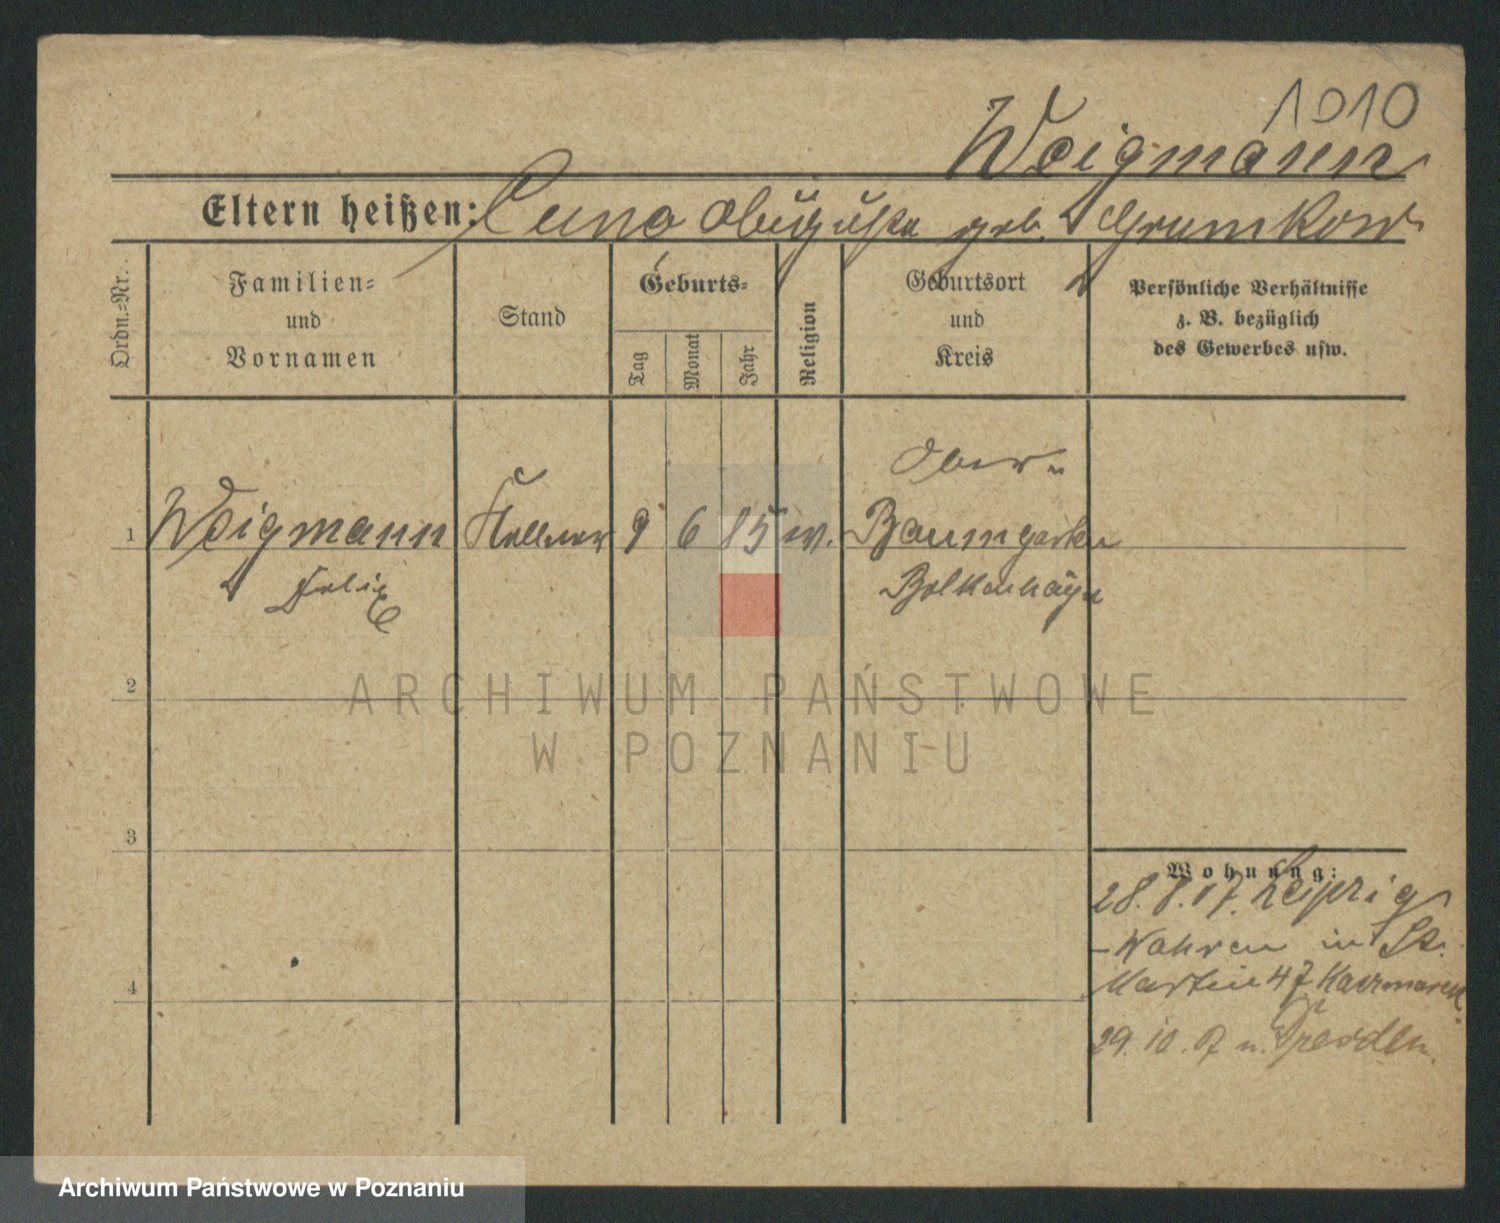 1010
Weigmann
Eltern heißen: Cuno Auguste geb. Grumkow
Ordn.-Nr.
Familien-
und
Vornamen
Stand
Geburts-
Tag
Monat
Jahr
Religion
Geburtsort
und
Kreis
Persönliche Verhältnisse
z. B. bezüglich
des Gewerbes usw.
Ober
1 Weigmann Kellner 9 6 85 Baumgarten
Felix Bolkenhayn
2
ARCHIWUM PAŃSTWOWE
W POZNANIU
3
Wohnung:
28.8.07. Leipzig
-Wahren in St.
Martin 47 Kaczmarek
4
29.10.07 n. Dresden.
Archiwum Państwowe w Poznaniu